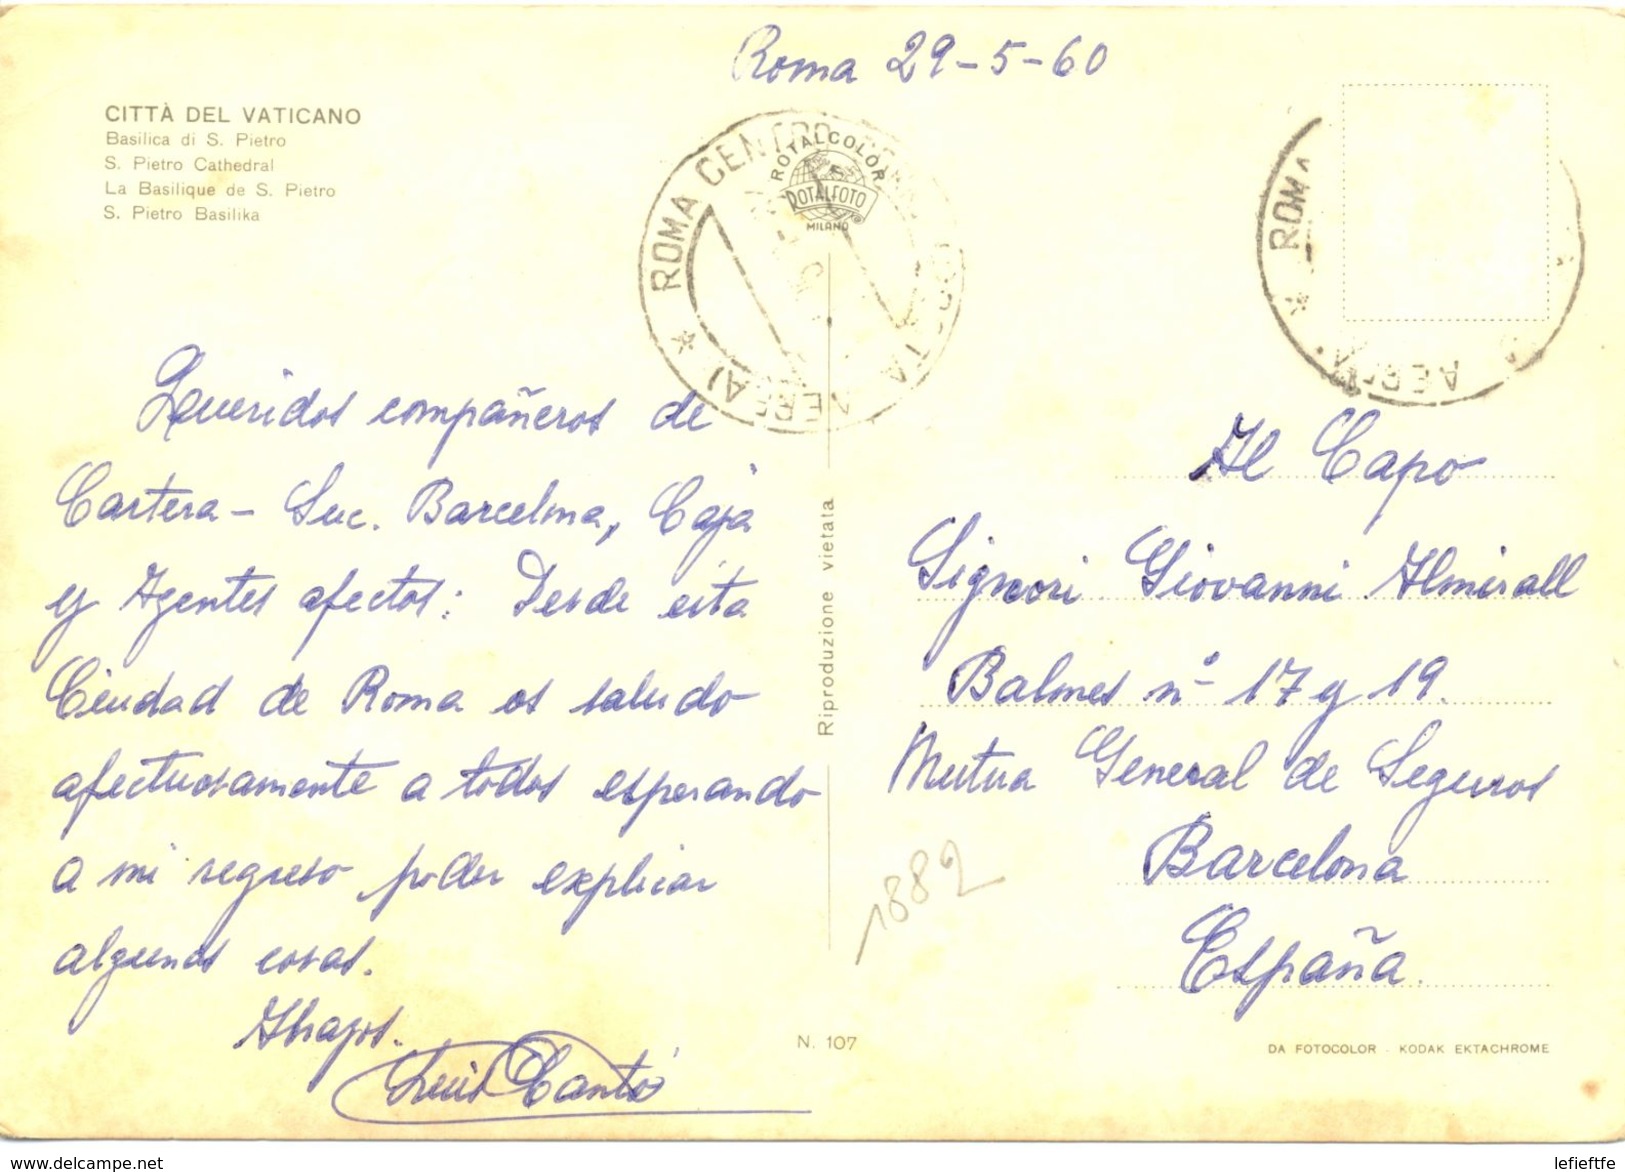 Roma 29-5-60
CITTÀ DEL VATICANO
Basilica di S. Pietro
S. Pietro Cathedral
La Basilique de S. Pietro
S. Pietro Basilika
ROMA CENTRO
ROTALCOLOR
ROTALFOTO
MILANO
ROMA
Queridos compañeros de
Cartera - Suc. Barcelona, Caja
y Agentes afectos: Desde esta
Ciudad de Roma os saludo
afectuosamente a todos esperando
a mi regreso poder explicar
algunas cosas.
Abrazos.
Luis Cantó
Riproduzione vietata
Al Capo
Signori Giovanni Almirall
Balmes nº 17 y 19.
Mutua General de Seguros
Barcelona
España.
1882
N. 107
DA FOTOCOLOR - KODAK EKTACHROME
www.delcampe.net
lefieftfe